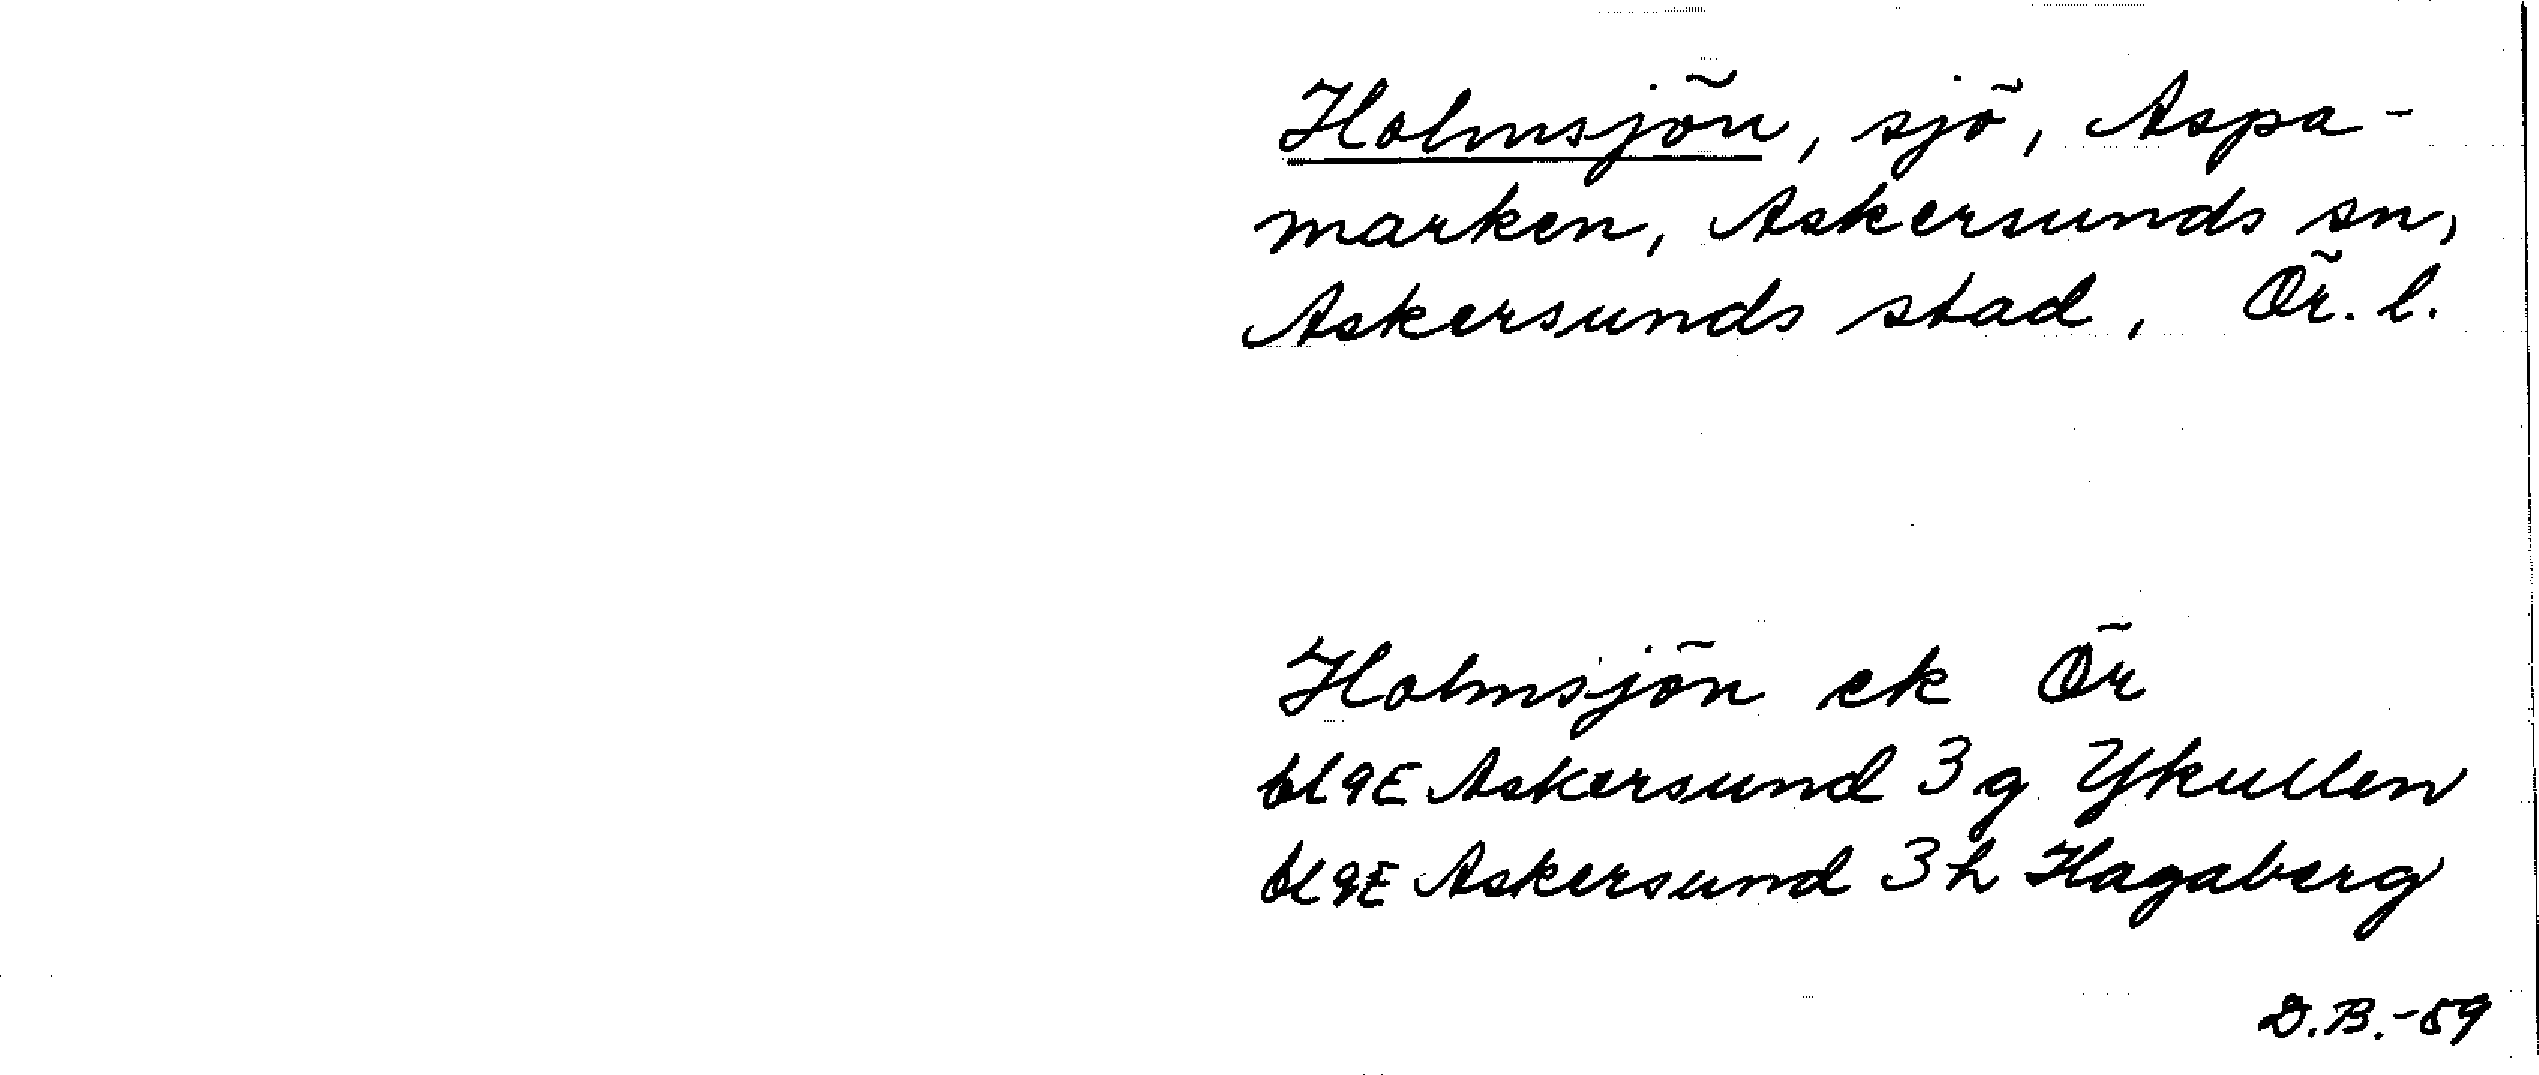 Holmsjön, sjö, Aspa-
marken, Askersunds sn,
Askersunds stad, Ör. l.
Holmsjön ek Ör
bl 9E Askersund 3g Ykullen
bl 9E Askersund 3h Hagaberg
D.B.-59